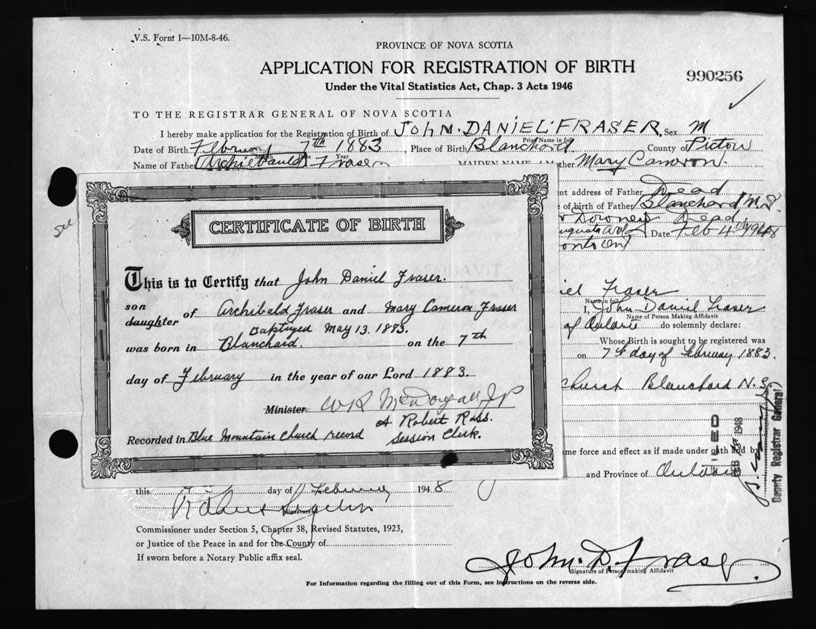 V.S. Form 1—10M-8-46.
PROVINCE OF NOVA SCOTIA
APPLICATION FOR REGISTRATION OF BIRTH
990256
Under the Vital Statistics Act, Chap. 3 Acts 1946
TO THE REGISTRAR GENERAL OF NOVA SCOTIA
I hereby make application for the Registration of Birth of JOHN. DANIEL FRASER, Sex M
Print Name in full
Date of Birth February 7th 1883, Place of Birth Blanchard. County of Pictou
Year
Name of Father Archiebauld Fraser MAIDEN NAME Mother Mary Cameron.
nt address of Father Dead
e of birth of Father Blanchard N.S.
Downey Dead
Date Feb 4th 1948
CERTIFICATE OF BIRTH
This is to Certify that John Daniel Fraser.
son
daughter of Archibald Fraser and Mary Cameron Fraser
Baptized May 13. 1883.
was born in Blanchard. on the 7th
day of February in the year of our Lord 1883.
Minister W R McDougall J P
Robert Ross.
Recorded in Blue Mountain Church record Session Clerk.
iel Fraser
Name in full
I, John Daniel Fraser
Name of Person Making Affidavit
of Ontario do solemnly declare:
Whose Birth is sought to be registered was
on 7th day of February 1883.
church Blanchard N.S.
FILED
FEB 1948
Deputy Registrar General
me force and effect as if made under oath and by
and Province of Ontario
this day of February 1948
Commissioner under Section 5, Chapter 38, Revised Statutes, 1923,
or Justice of the Peace in and for the County of
If sworn before a Notary Public affix seal.
John. D. Fraser
Signature of Person making Affidavit
For Information regarding the filling out of this Form, see Instructions on the reverse side.